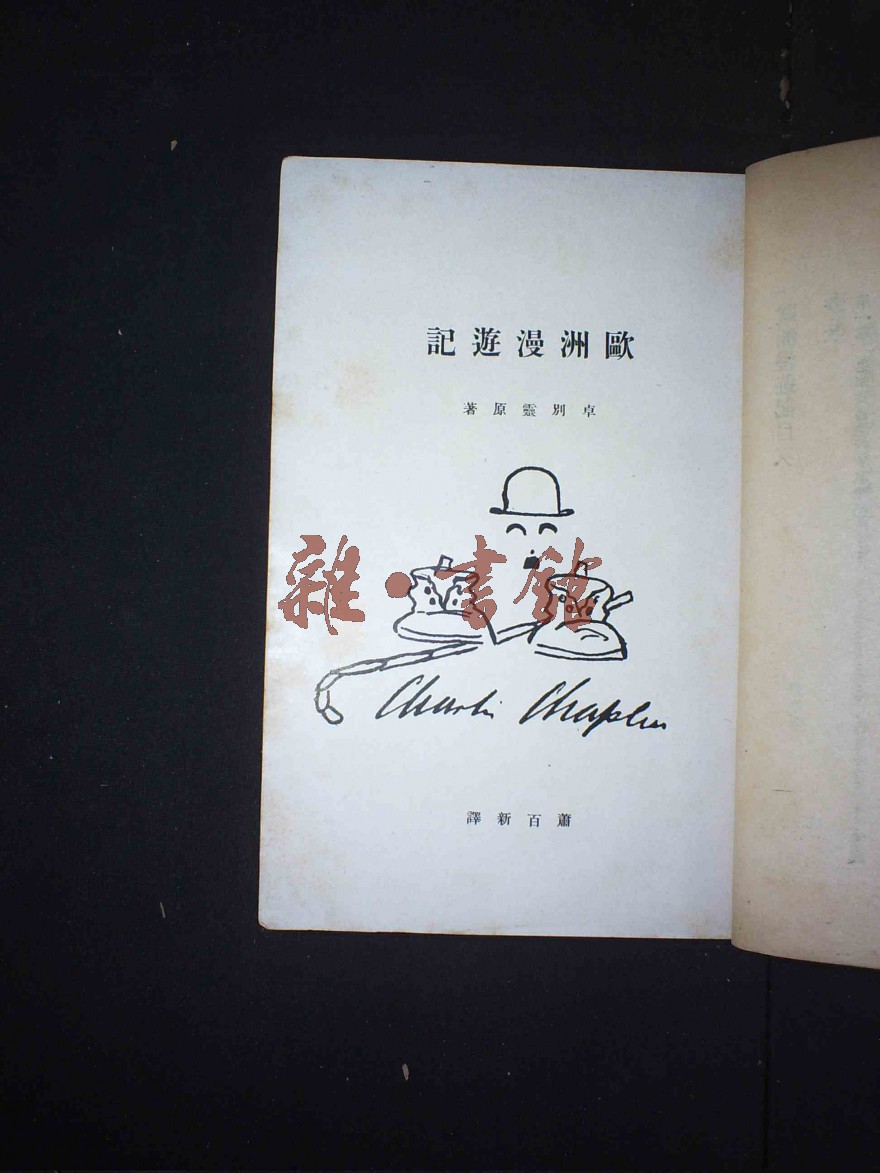 歐洲漫遊記
卓別靈原著
雜·書館
Charlie Chaplin
蕭百新譯